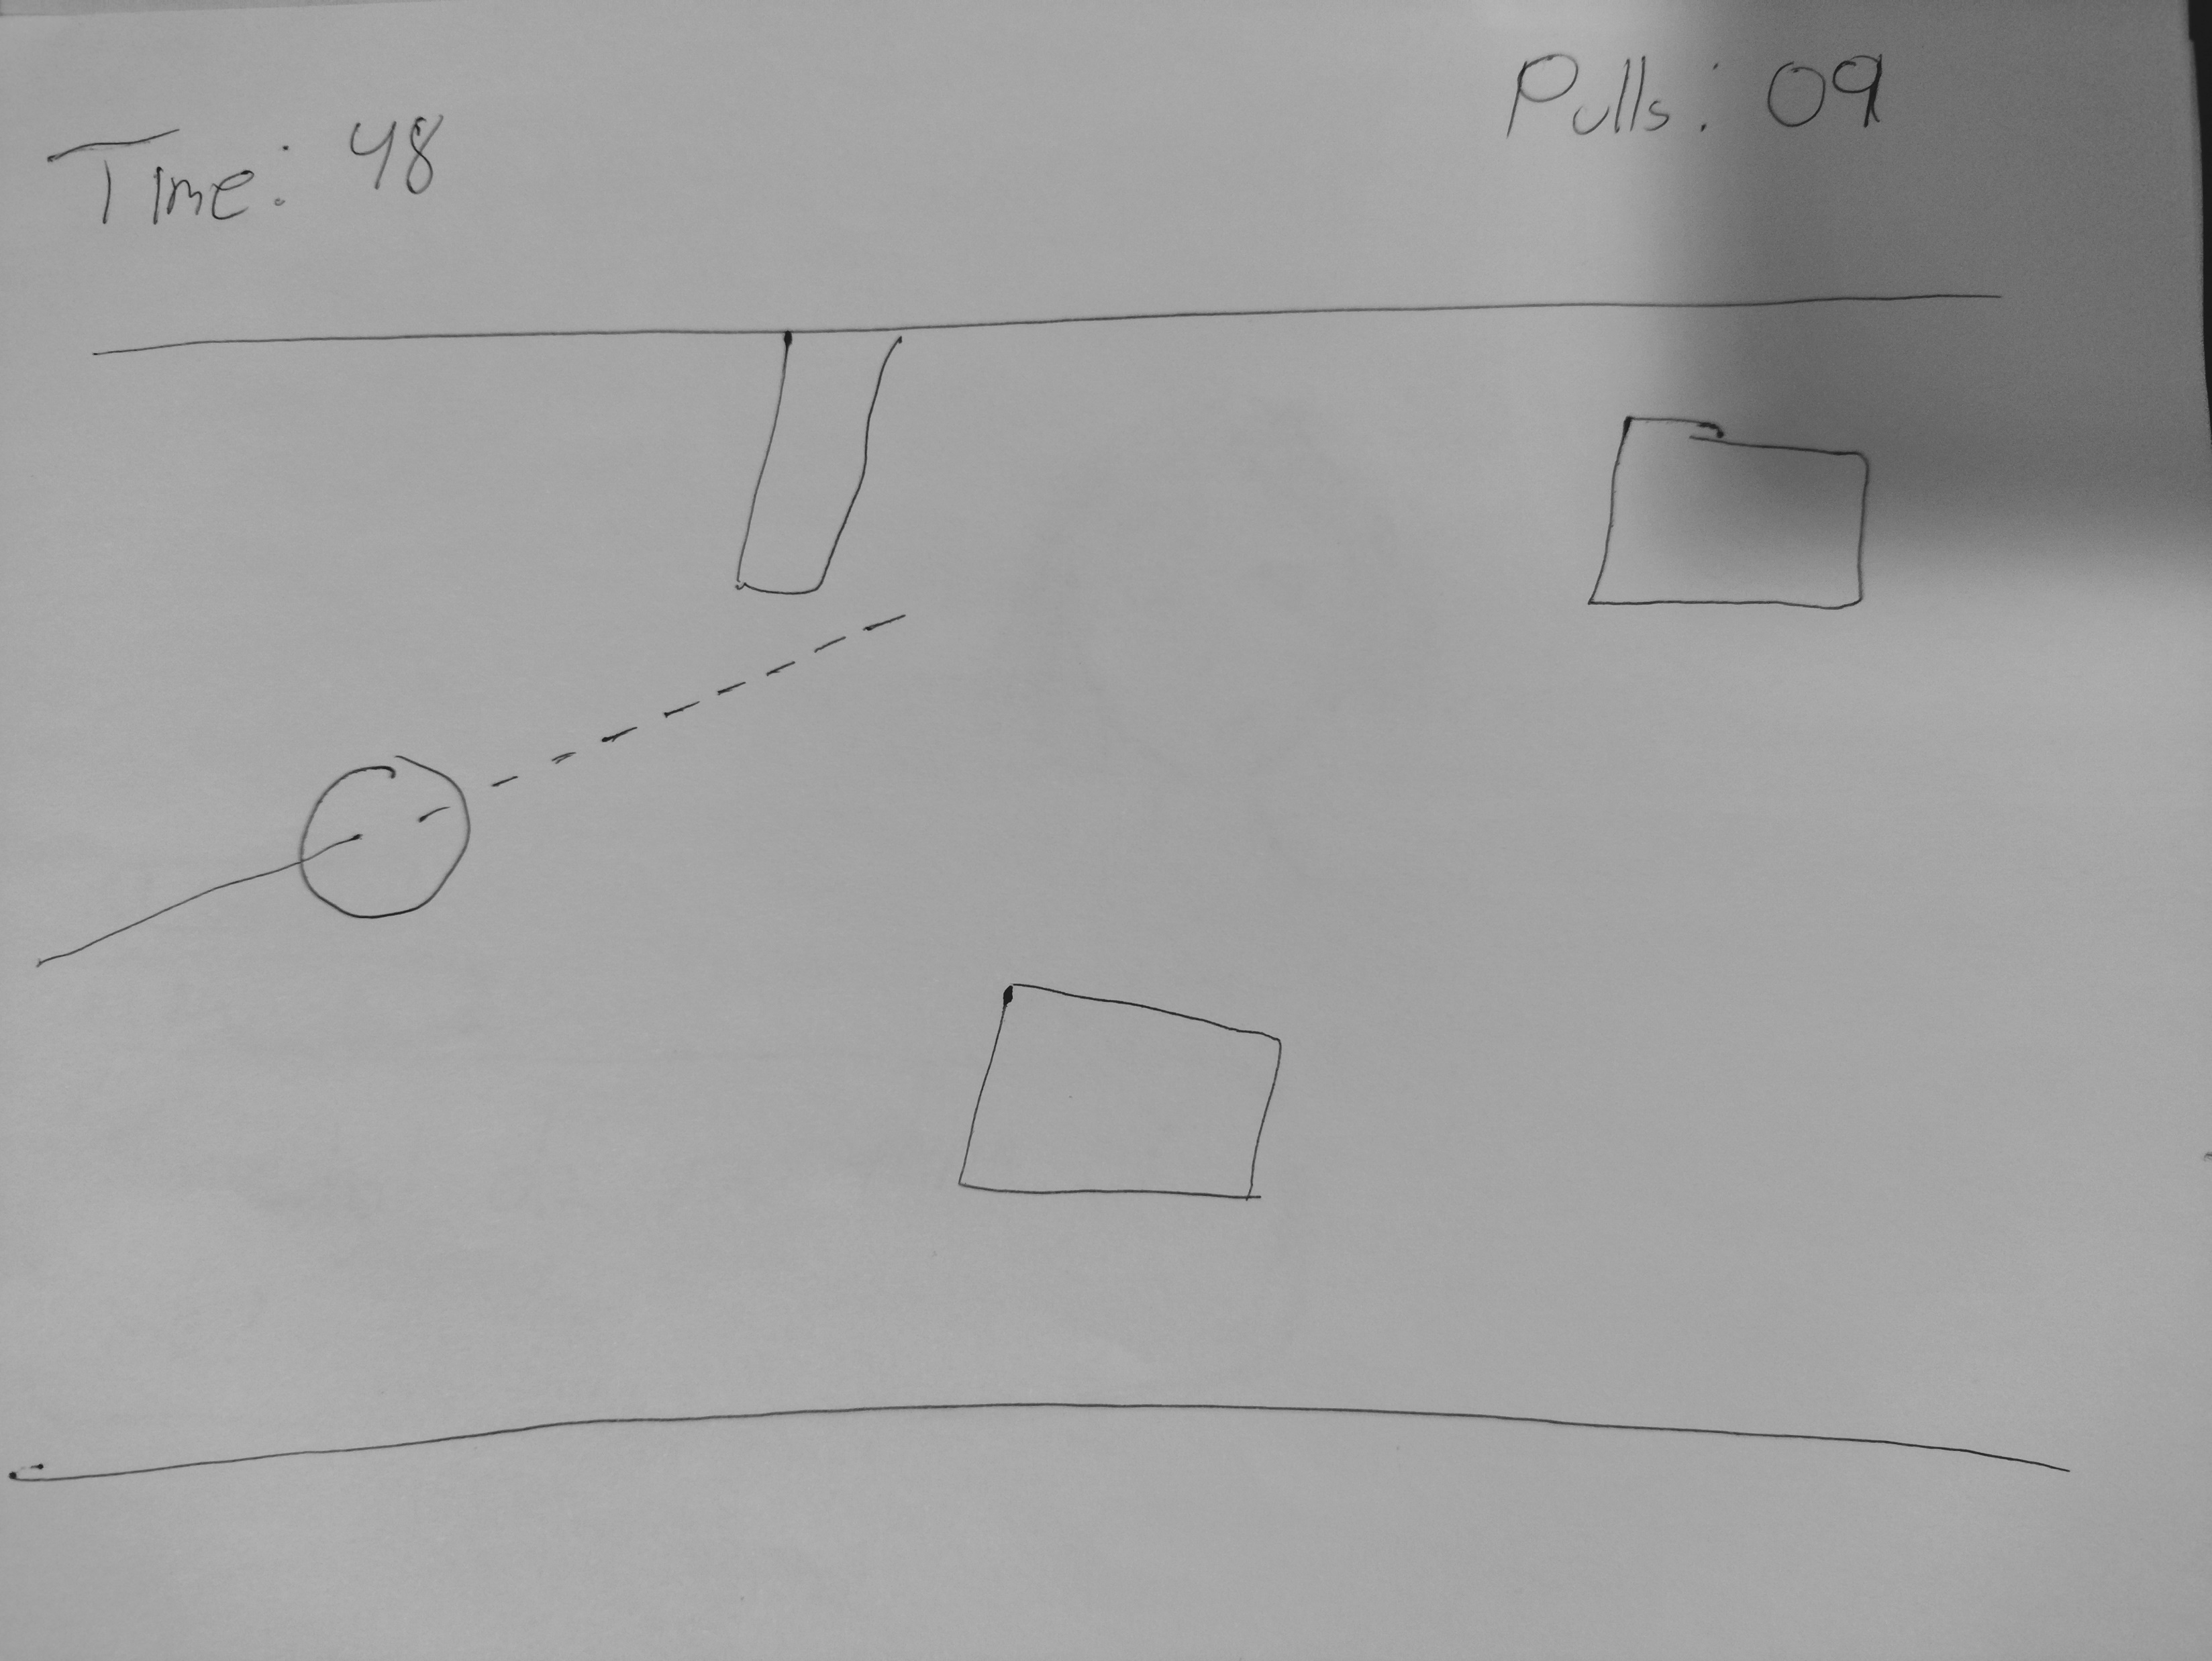 Time: 48
Pulls: 09